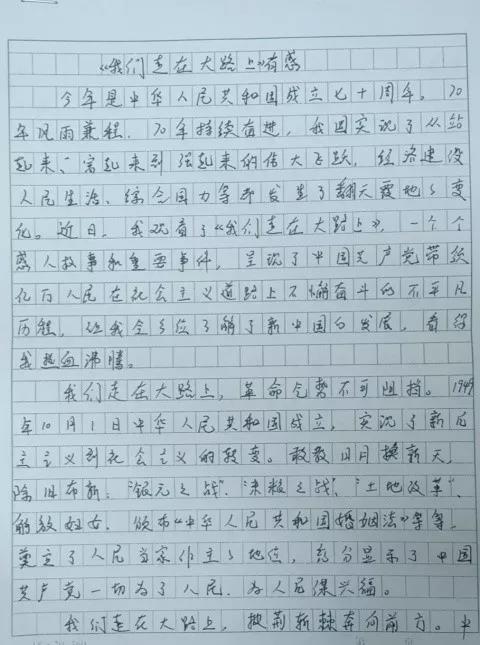 《我们走在大路上》有感
今年是中华人民共和国成立七十周年。70
年风雨兼程，70年持续奋进，我国实现了从站
起来、富起来到强起来的伟大飞跃，经济建设
人民生活、综合国力等都发生了翻天覆地的变
化。近日，我观看了《我们走在大路上》，一个个
感人故事和重要事件，呈现了中国共产党带领
亿万人民在社会主义道路上不懈奋斗的不平凡
历程，让我全方位了解了新中国的发展，看得
我热血沸腾。
我们走在大路上，革命气势不可阻挡。1949
年10月1日中华人民共和国成立，实现了新民
主主义到社会主义的转变。敢教日月换新天，
除旧布新：“银元之战”、“米粮之战”、“土地改革”、
解放妇女、颁布《中华人民共和国婚姻法》等等，
奠定了人民当家作主的地位，充分显示了中国
共产党一切为了人民、为人民谋兴福。
我们走在大路上，披荆斩棘奔向前方。中